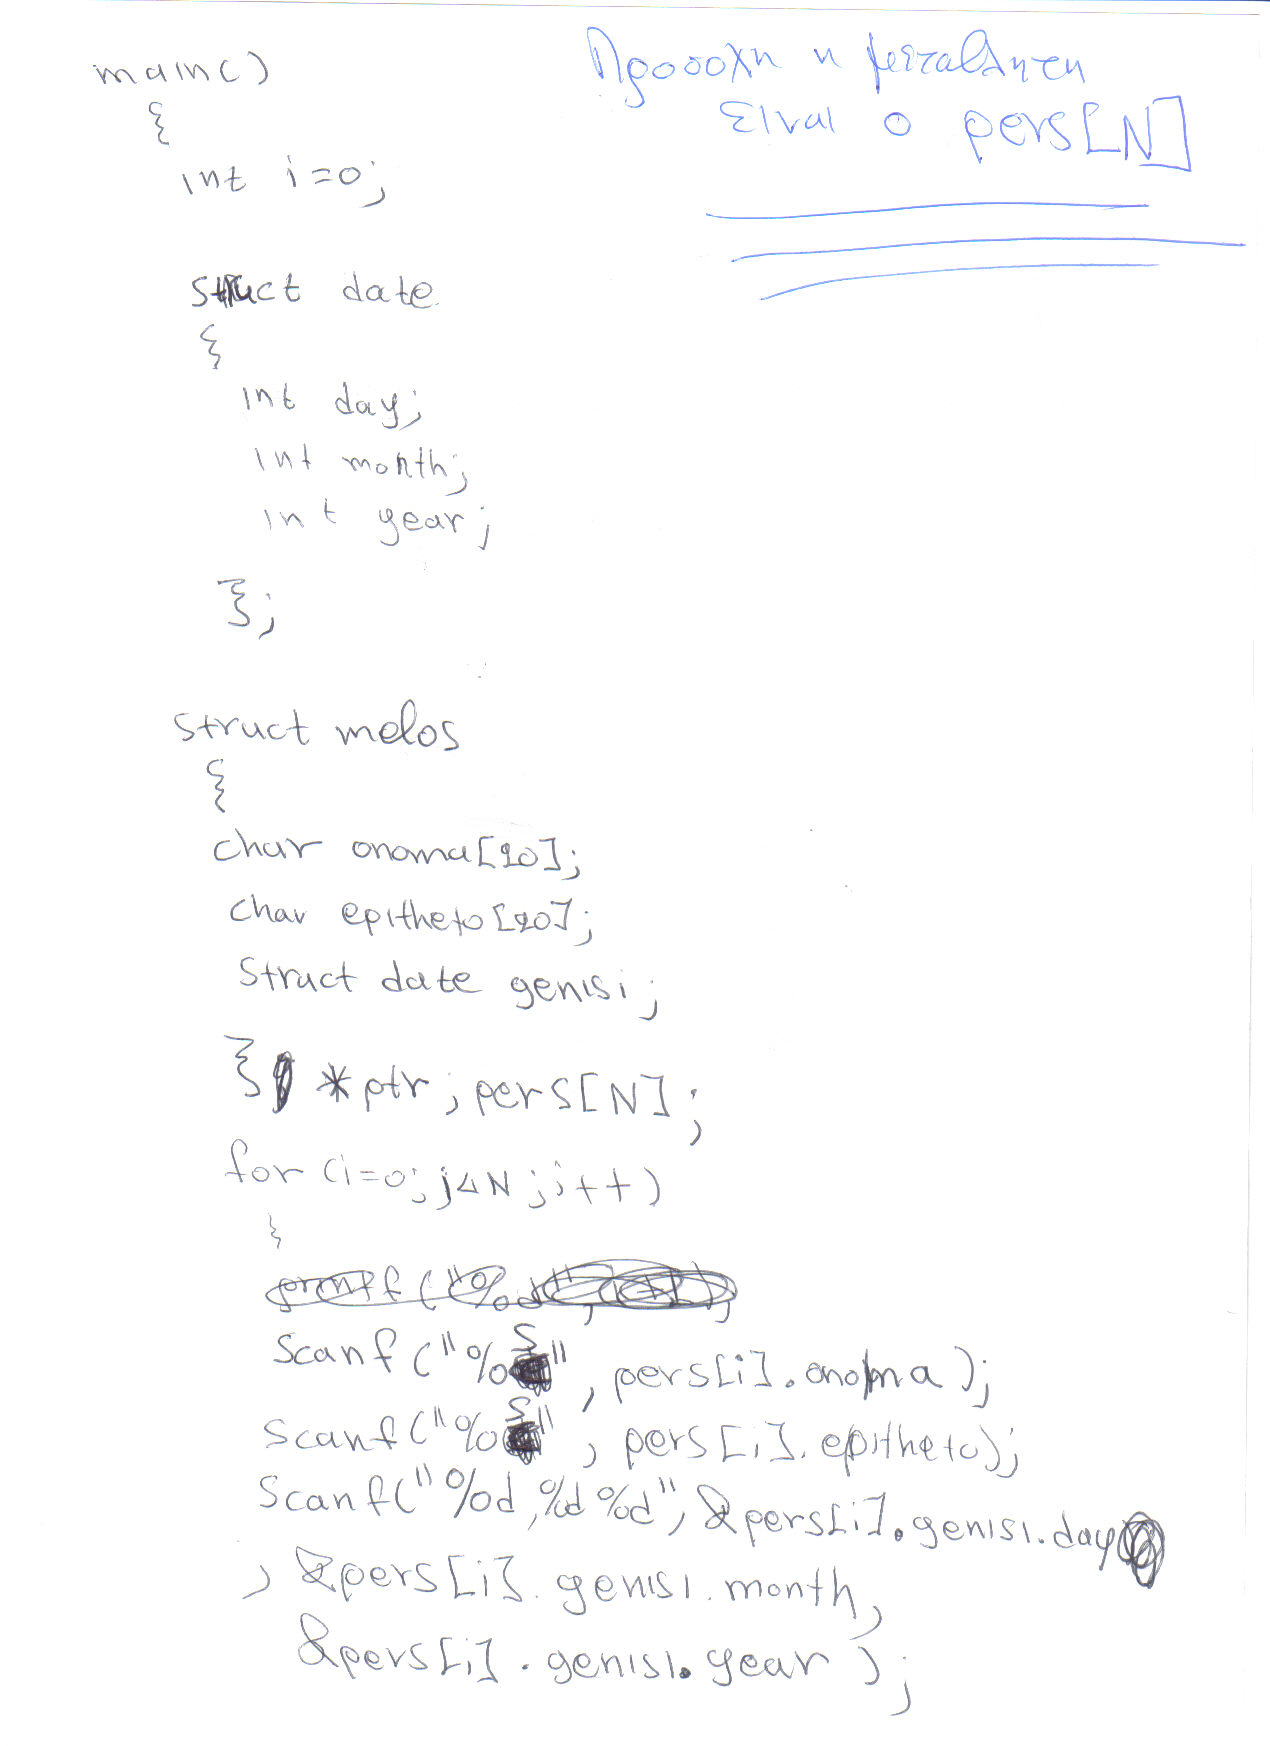 main()
Προσοχη η μεταβλητη
Είναι ο pers[N]
{
int i=0;
struct date
{
int day;
int month;
int year;
};
struct melos
{
char onoma[20];
char epitheto[20];
struct date genisi;
} *ptr, pers[N];
for (i=0; i<N; i++)
{
scanf("%s", pers[i].onoma);
scanf("%s", pers[i].epitheto);
scanf("%d,%d %d", &pers[i].genisi.day
, &pers[i].genisi.month,
&pers[i].genisi.year);